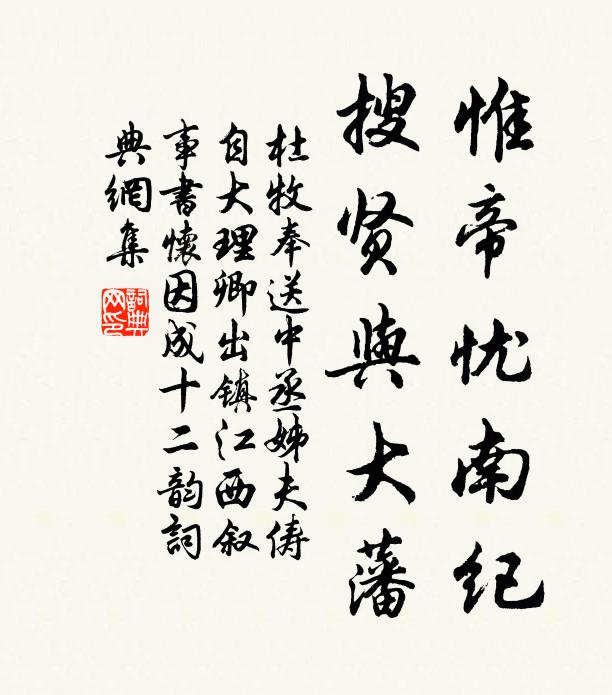 惟帝忧南纪
搜贤與大藩
杜牧奉送中丞姊夫俦
自大理卿出镇江西叙
事書懷因成十二韵詞
典網集
詞典网印